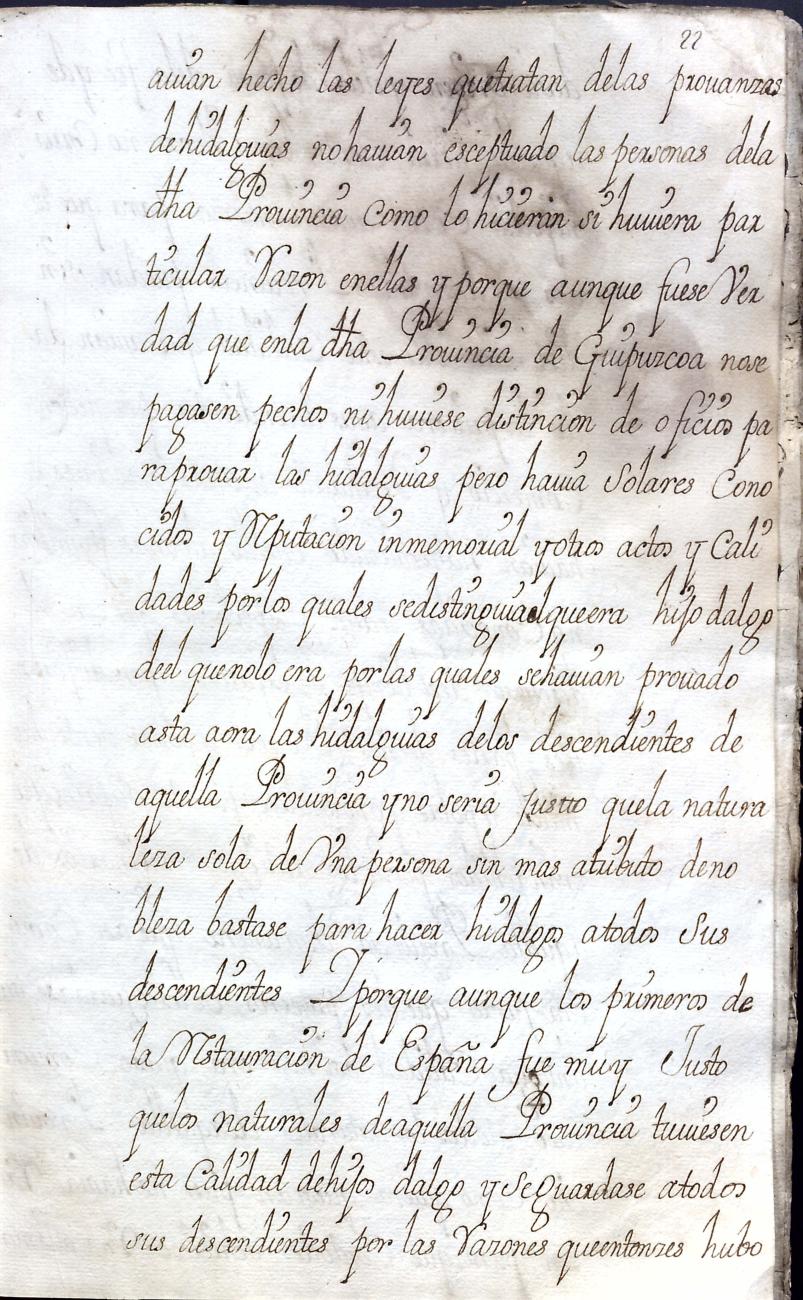 22
auian hecho las leyes quetratan delas prouanzas
dehidalguias nohauian esceptuado las personas dela
dha Prouincia como lo hicieran si huuiera par
ticular Razon enellas y porque aunque fuese Ver
dad que enla dha Prouincia de Guipuzcoa nose
pagasen pechos ni huuiese distincion de oficios pa
raprouar las hidalguias pero hauia Solares Cono
cidos y Reputacion inmemorial yotros actos y Cali
dades porlos quales sedistinguia elqueera hijodalgo
deel quenolo era porlas quales sehauian prouado
asta aora las hidalguias delos descendientes de
aquella Prouincia yno seria Justto quela natura
leza sola de Vna persona sin mas atributo deno
bleza bastase para hacer hidalgos atodos Sus
descendientes Yporque aunque los primeros de
la Restauracion de España fue muy Justo
quelos naturales deaquella Prouincia tuuiesen
esta Calidad dehijos dalgo y Seguardase atodos
sus descendientes por las Razones queentonzes hubo